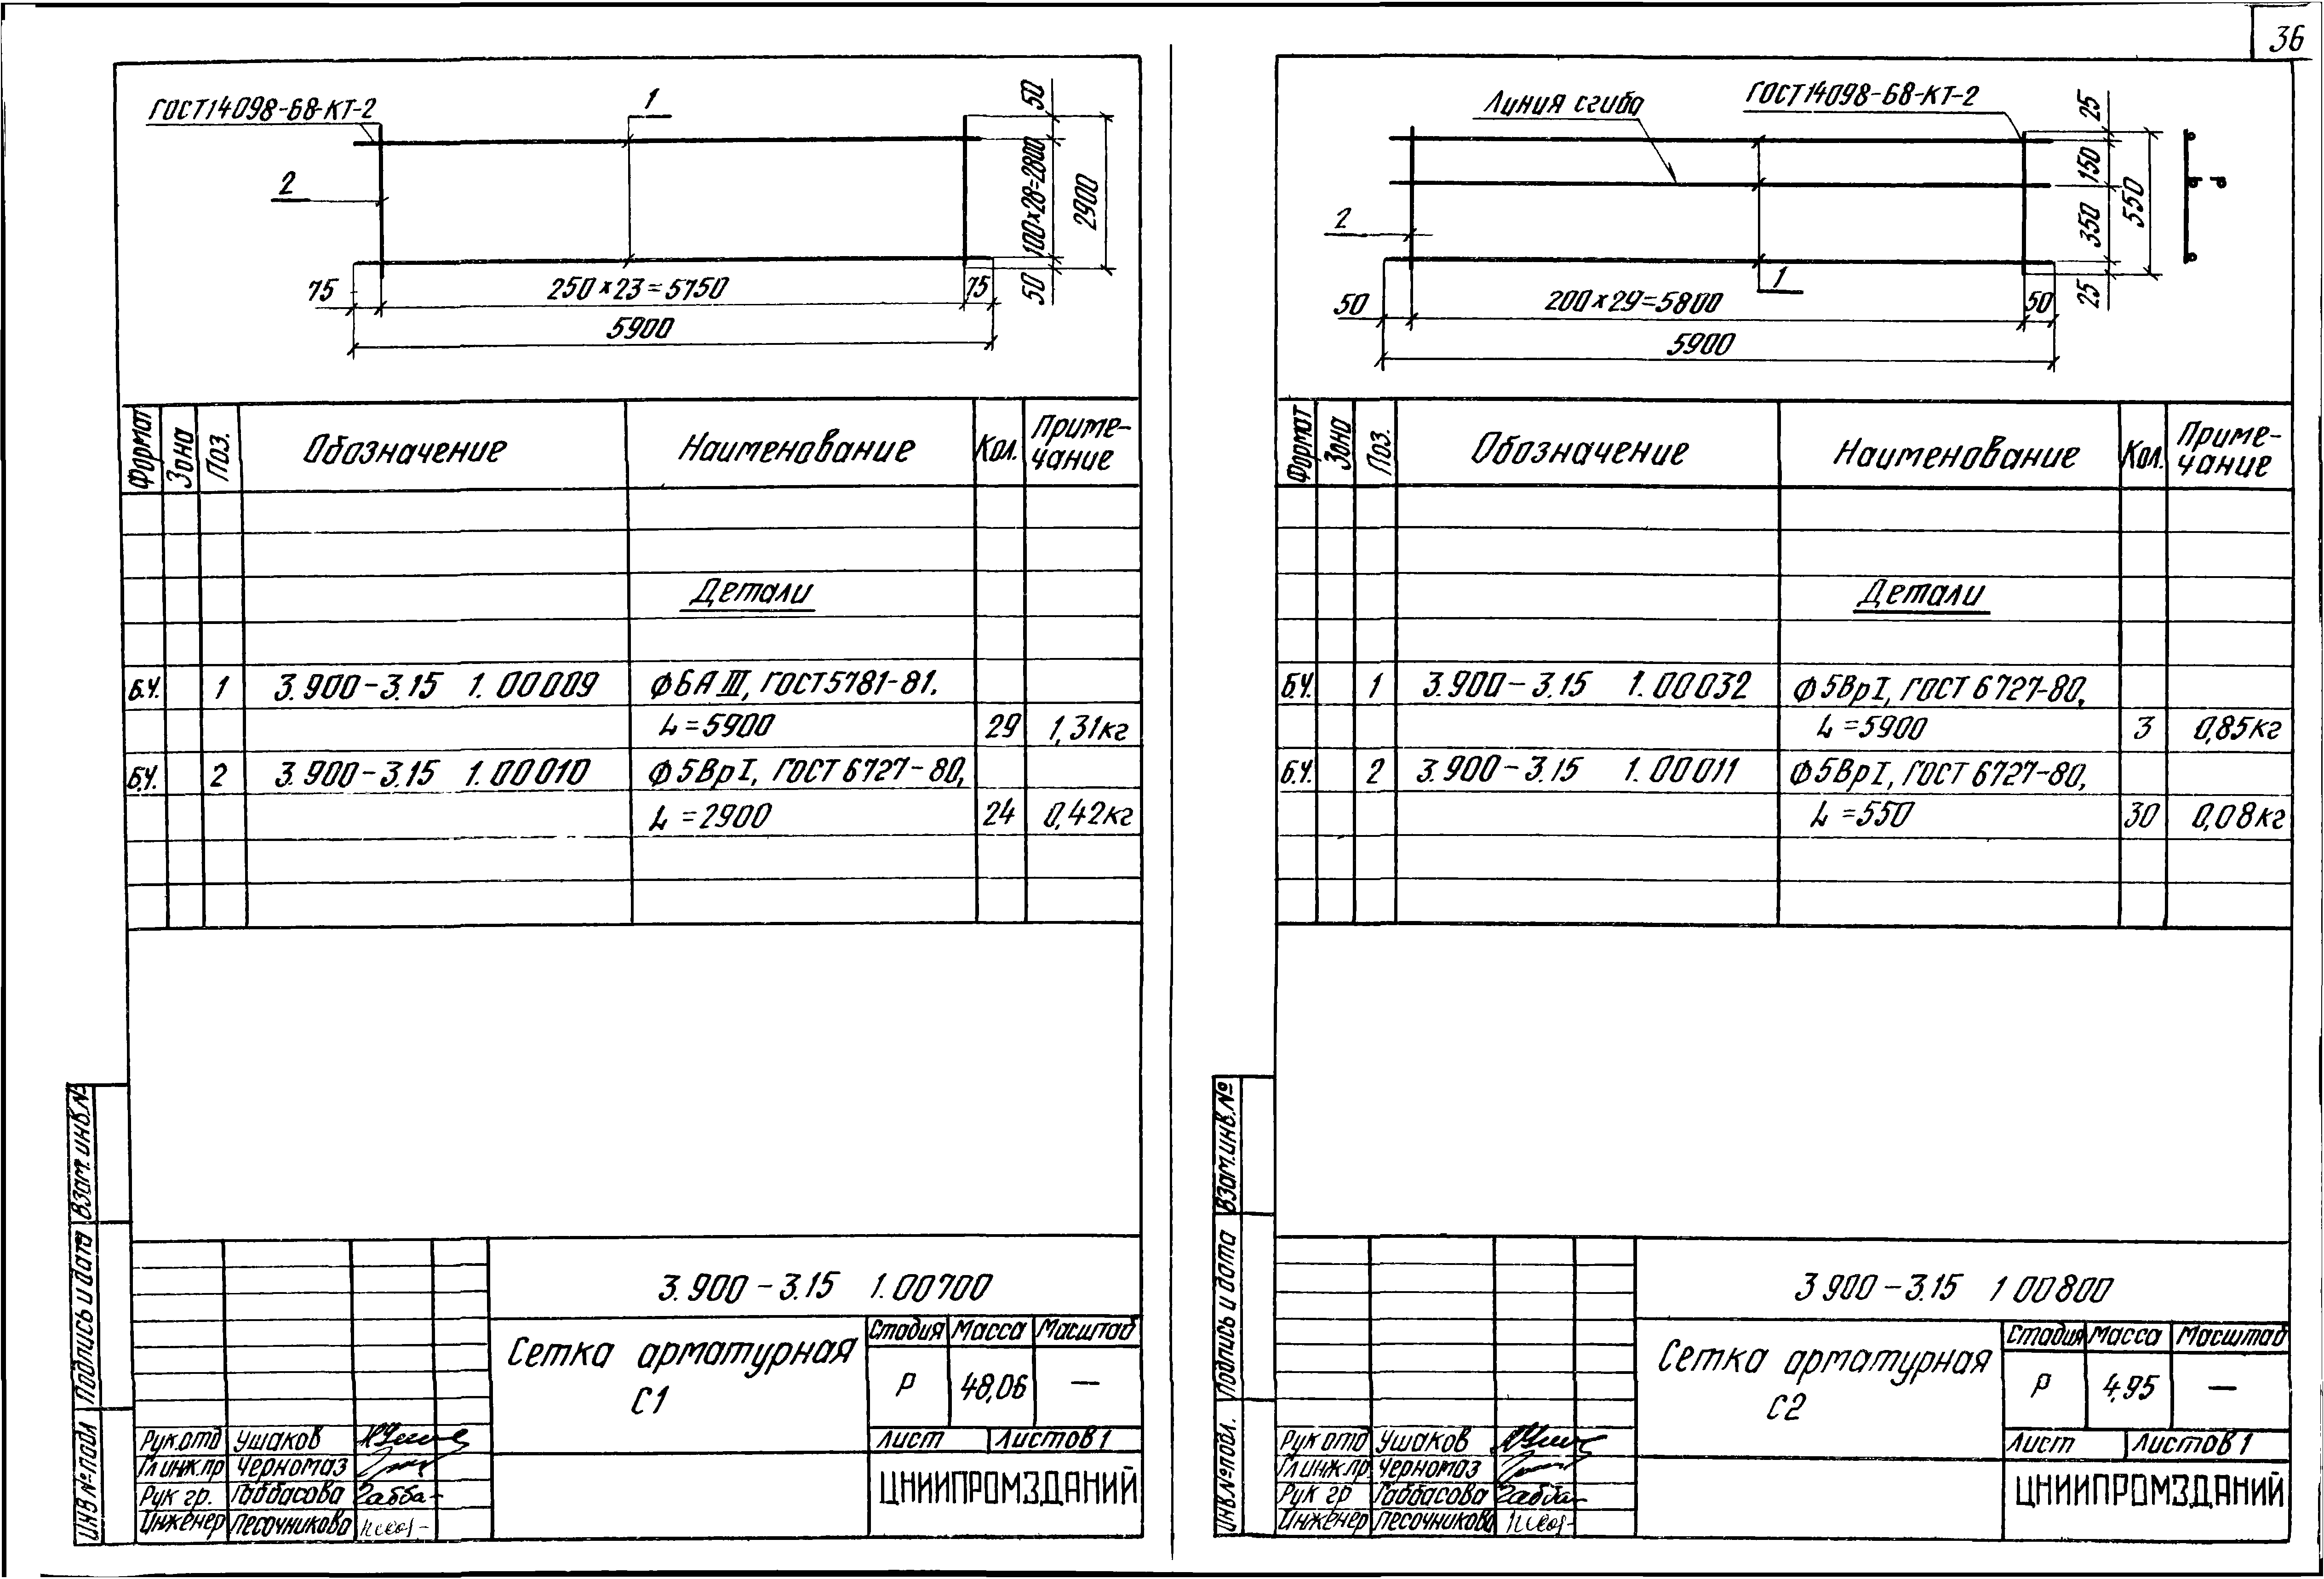 36
ГОСТ14098-68-КТ-2
1
2
50
100×28=2800
2900
50
75
250×23=5750
75
5900
Формат Зона Поз. Обозначение Наименование Кол. Приме-
чание
Детали
Б.Ч. 1 3.900-3.15 1.00009 ф6АIII, ГОСТ5781-81.
L=5900 29 1,31кг
Б.Ч. 2 3.900-3.15 1.00010 ф5ВрI, ГОСТ6727-80,
L=2900 24 0,42кг
Взам.инв.№
Подпись и дата
Инв №подл
3.900-3.15 1.00700
Сетка арматурная
С1
Стадия Масса Масштаб
Р 48,06 —
Лист Листов 1
Рук.отд Ушаков
Гл инж.пр Черномаз
Рук гр. Габбасова Габба-
Инженер Песочникова
ЦНИИПРОМЗДАНИЙ
Линия сгиба
ГОСТ14098-68-КТ-2
2
1
25
150
350
550
25
50
200×29=5800
50
5900
Формат Зона Поз. Обозначение Наименование Кол. Приме-
чание
Детали
Б.Ч. 1 3.900-3.15 1.00032 ф5ВрI, ГОСТ6727-80,
L=5900 3 0,85кг
Б.Ч. 2 3.900-3.15 1.00011 ф5ВрI, ГОСТ6727-80,
L=550 30 0,08кг
Взам.инв.№
Подпись и дата
Инв.№подл.
3 900-3.15 1 00800
Сетка арматурная
С2
Стадия Масса Масштаб
Р 4,95 —
Лист Листов 1
Рук отд Ушаков
Гл инж.пр Черномаз
Рук гр Габбасова
Инженер Песочникова
ЦНИИПРОМЗДАНИЙ